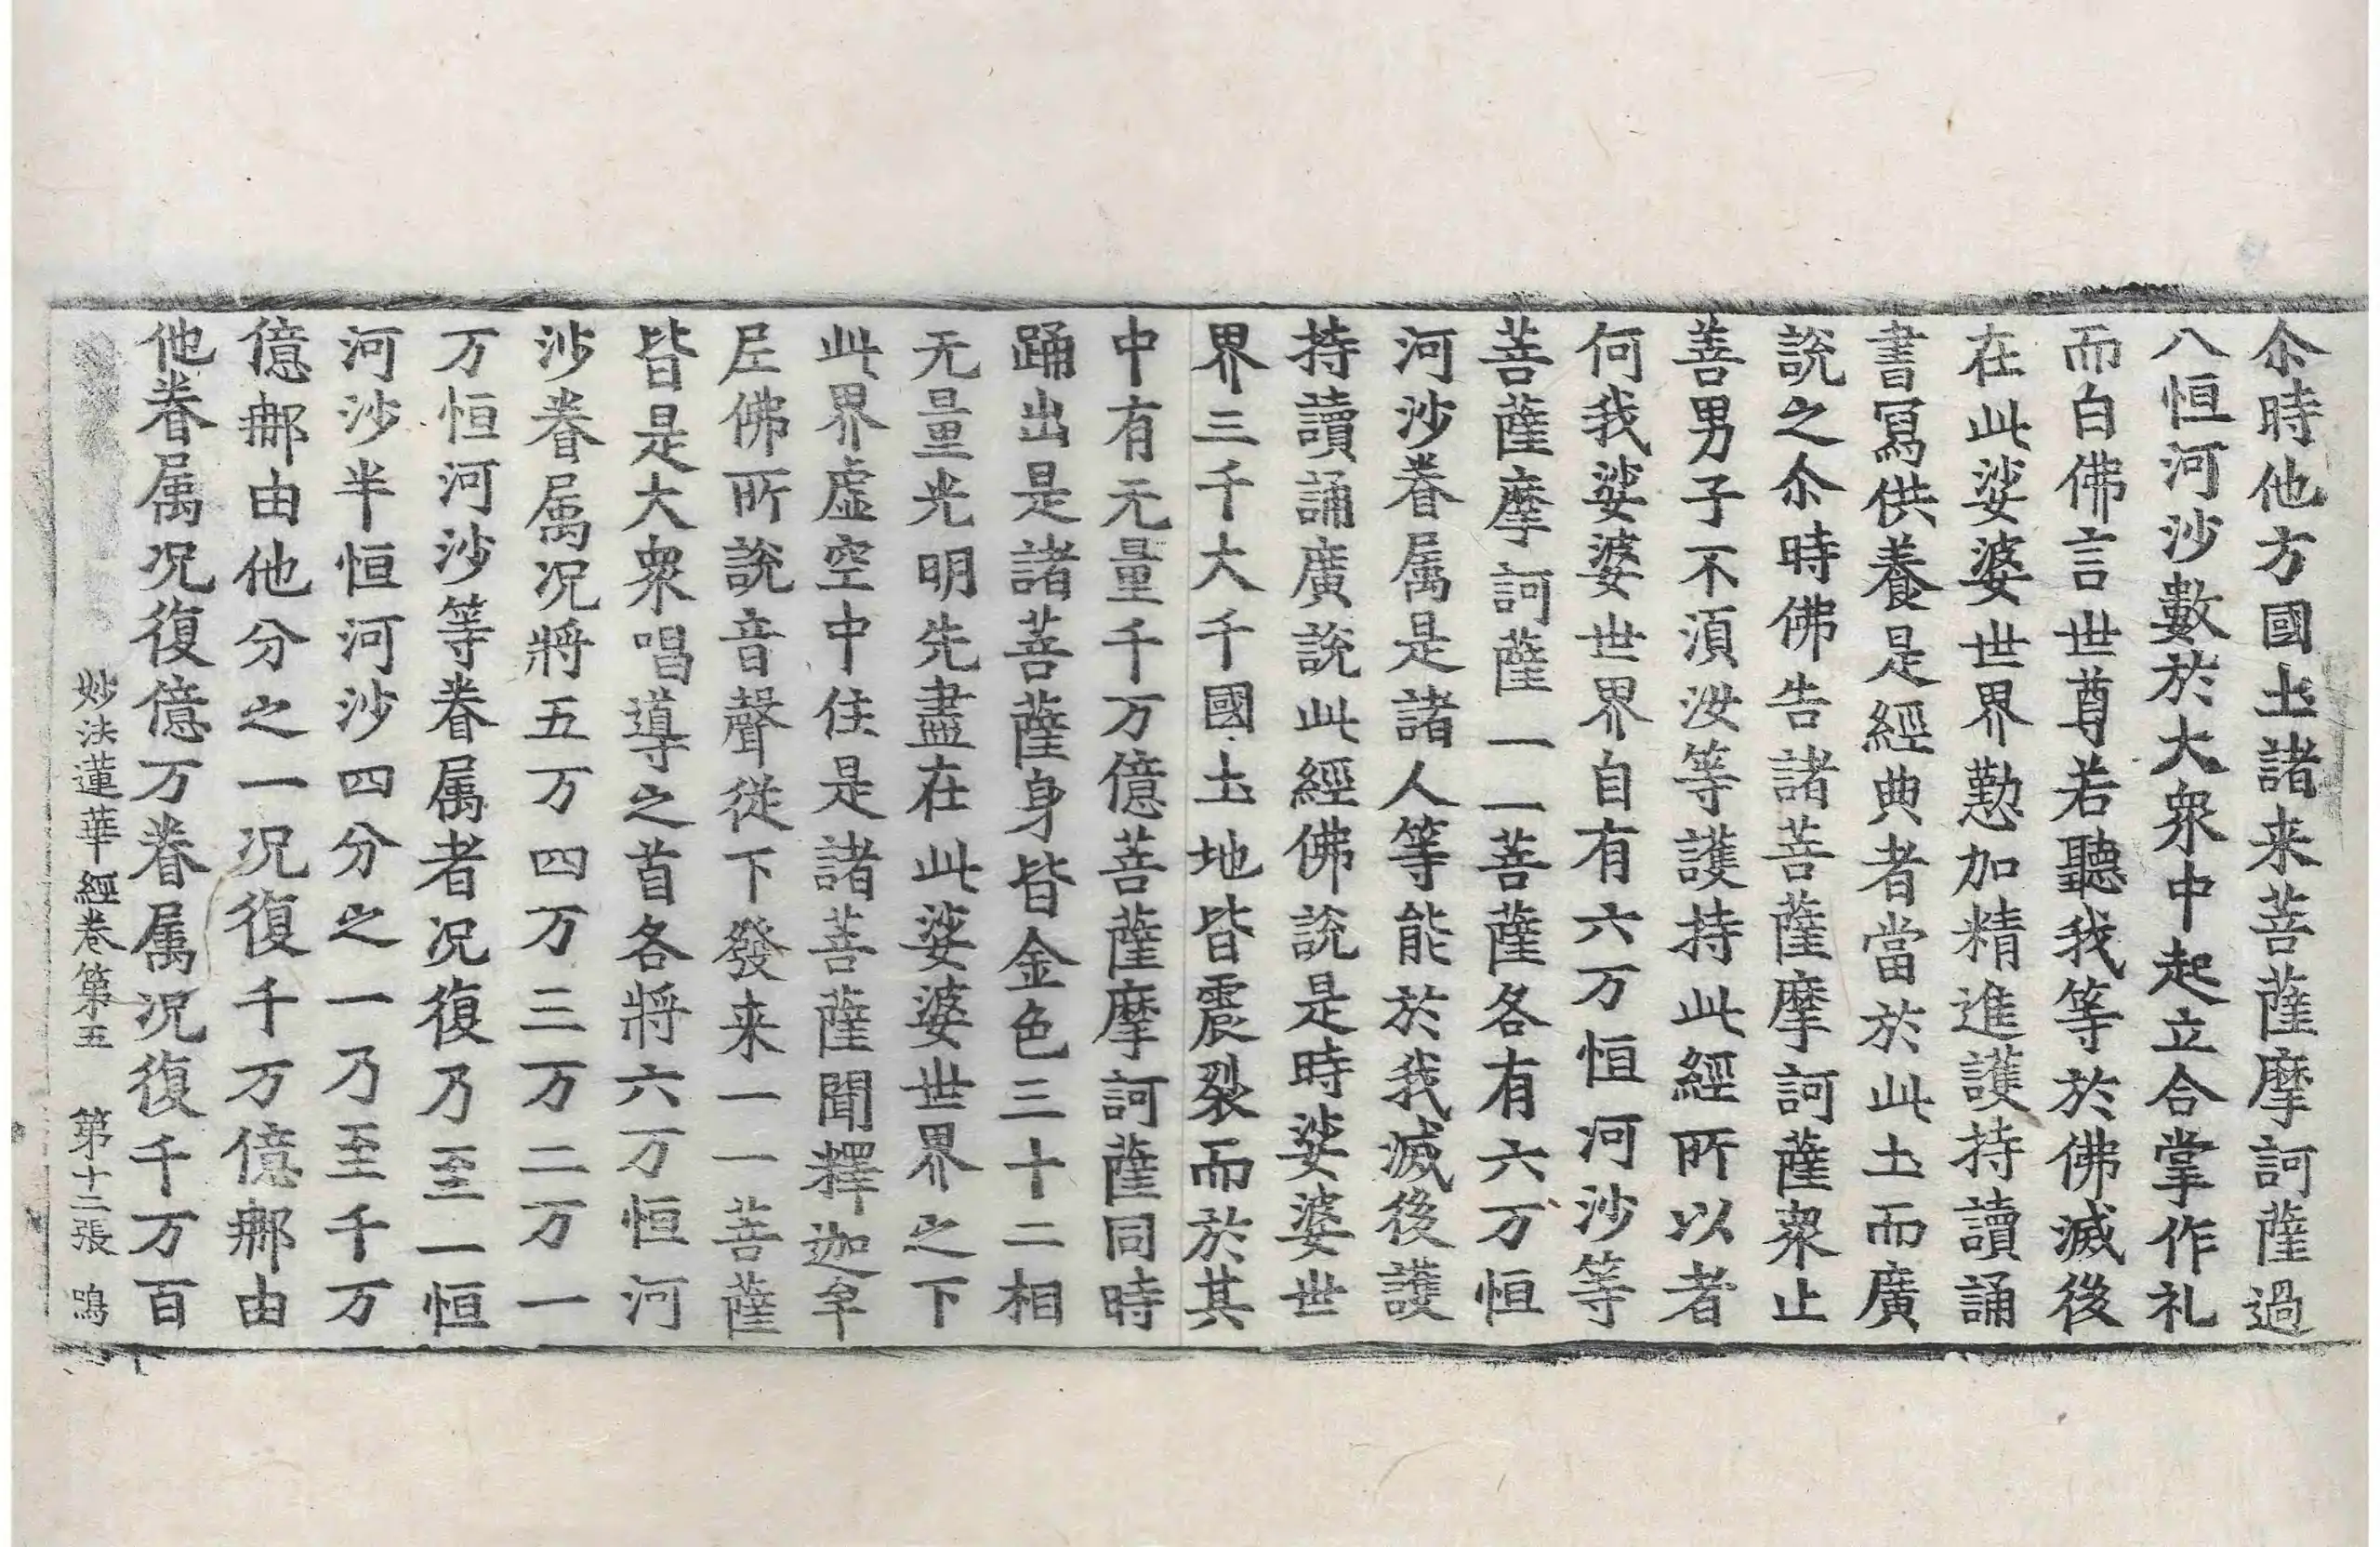 尒時他方國土諸来菩薩摩訶薩過
八恒河沙數於大衆中起立合掌作礼
而白佛言世尊若聽我等於佛滅後
在此娑婆世界懃加精進護持讀誦
書寫供養是經典者當於此土而廣
說之尒時佛告諸菩薩摩訶薩衆止
善男子不湏汝等護持此經所以者
何我娑婆世界自有六万恒河沙等
菩薩摩訶薩一一菩薩各有六万恒
河沙眷属是諸人等能於我滅後護
持讀誦廣說此經佛說是時娑婆世
界三千大千國土地皆震裂而於其
中有无量千万億菩薩摩訶薩同時
踊出是諸菩薩身皆金色三十二相
无量光明先盡在此娑婆世界之下
此界虛空中住是諸菩薩聞釋迦牟
𡰱佛所說音聲從下發来一一菩薩
皆是大衆唱導之首各將六万恒河
沙眷属况將五万四万三万二万一
万恒河沙等眷属者况復乃至一恒
河沙半恒河沙四分之一乃至千万
億𨚗由他分之一况復千万億𨚗由
他眷属况復億万眷属况復千万百
妙法蓮華經卷第五 第十二張